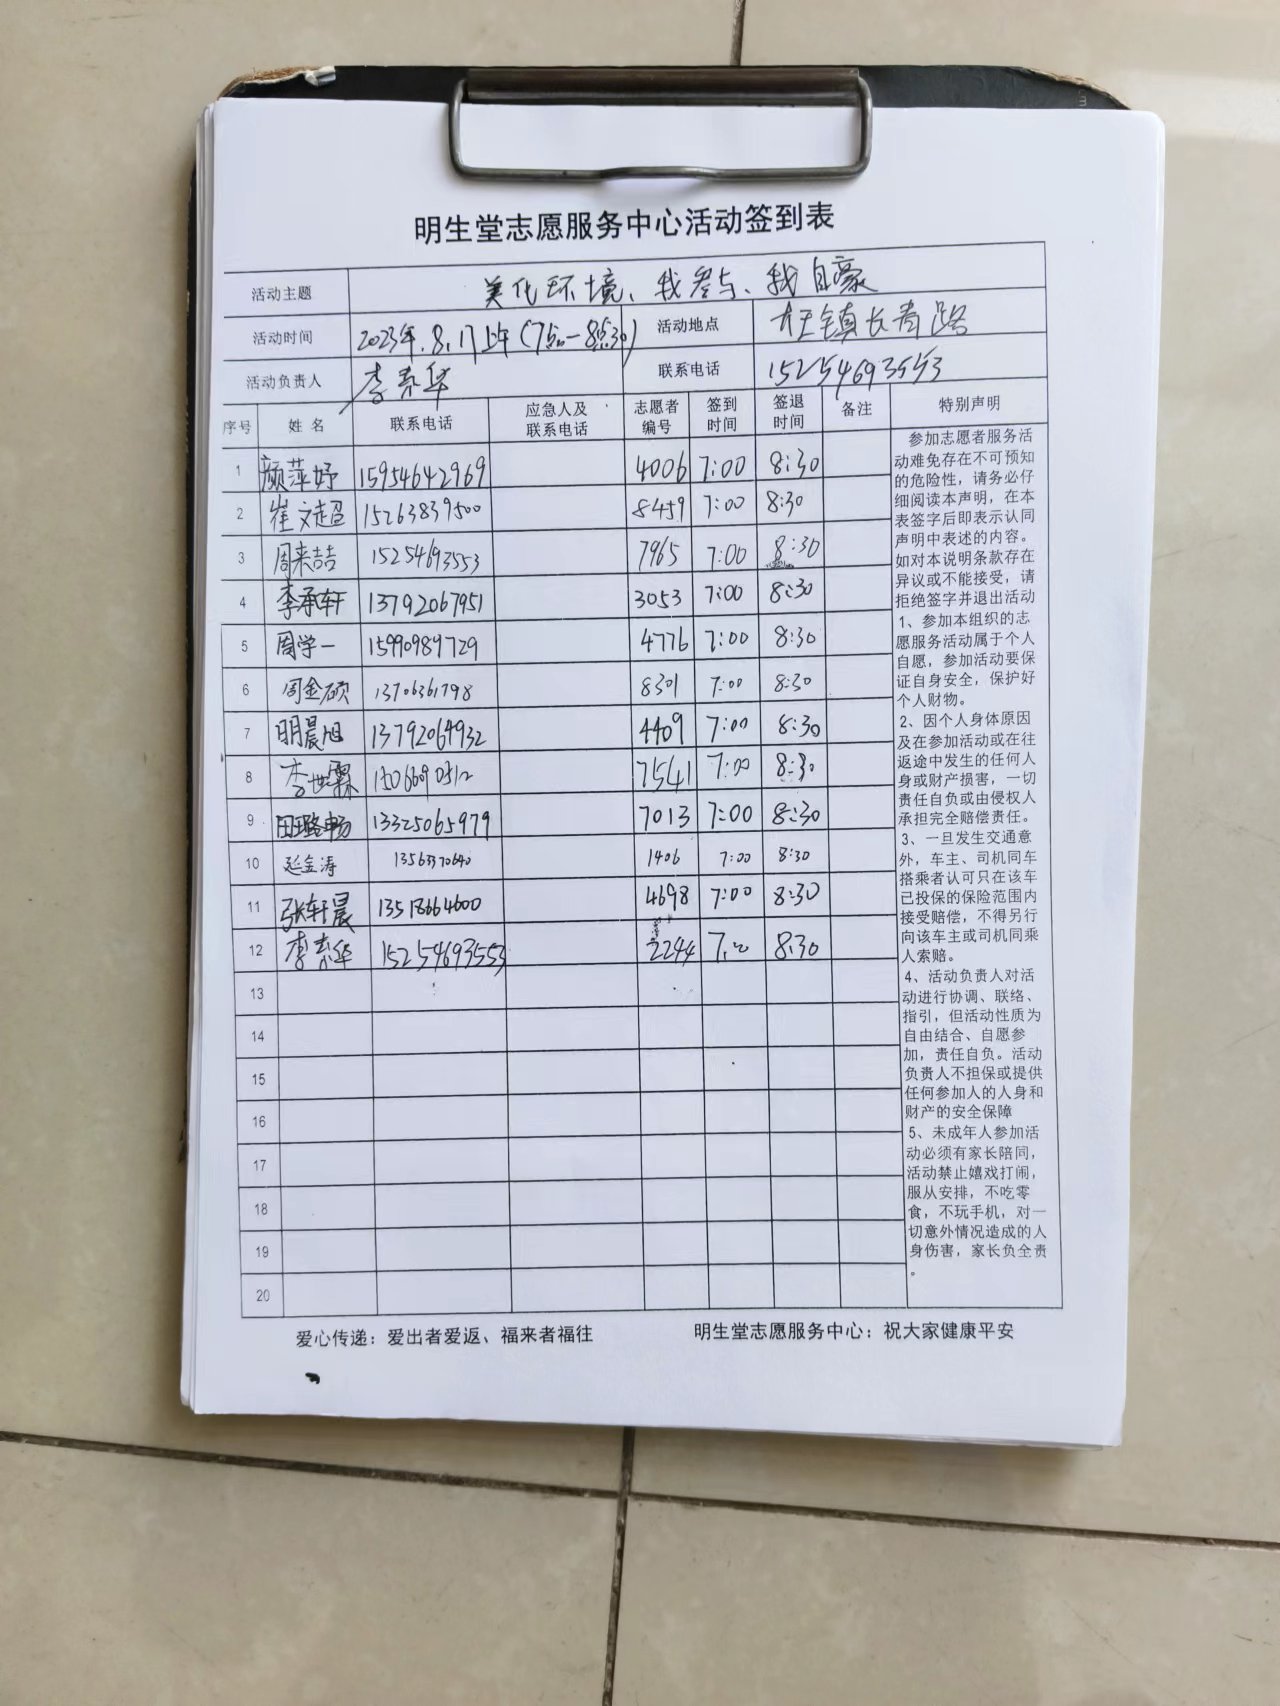 明生堂志愿服务中心活动签到表
活动主题 美化环境、我参与、我自豪
活动时间 2023年.8.17上午(7点—8点30) 活动地点 镇长青路
活动负责人 李素华 联系电话 15254693553
序号 姓名 联系电话 应急人及联系电话 志愿者编号 签到时间 签退时间 备注 特别声明
1 颜萍妤 15954642969 4006 7:00 8:30
2 崔文超 15263839500 8459 7:00 8:30
3 周来喆 15254693553 7965 7:00 8:30
4 李承轩 13792067951 3053 7:00 8:30
5 周学一 15990989729 4776 7:00 8:30
6 周金硕 13706361798 8301 7:00 8:30
7 明晨旭 13792064932 4409 7:00 8:30
8 李世霖 7541 7:00 8:30
9 田璐畅 13325065979 7013 7:00 8:30
10 延金涛 13563370640 1406 7:00 8:30
11 张轩晨 13518664600 4698 7:00 8:30
12 李素华 15254693553 2244 7:00 8:30
13
14
15
16
17
18
19
20
参加志愿者服务活
动难免存在不可预知
的危险性，请务必仔
细阅读本声明，在本
表签字后即表示认同
声明中表述的内容。
如对本说明条款存在
异议或不能接受，请
拒绝签字并退出活动
1、参加本组织的志
愿服务活动属于个人
自愿，参加活动要保
证自身安全，保护好
个人财物。
2、因个人身体原因
及在参加活动或在往
返途中发生的任何人
身或财产损害，一切
责任自负或由侵权人
承担完全赔偿责任。
3、一旦发生交通意
外，车主、司机同车
搭乘者认可只在该车
已投保的保险范围内
接受赔偿，不得另行
向该车主或司机同乘
人索赔。
4、活动负责人对活
动进行协调、联络、
指引，但活动性质为
自由结合、自愿参
加，责任自负。活动
负责人不担保或提供
任何参加人的人身和
财产的安全保障
5、未成年人参加活
动必须有家长陪同，
活动禁止嬉戏打闹，
服从安排，不吃零
食，不玩手机，对一
切意外情况造成的人
身伤害，家长负全责
。
爱心传递：爱出者爱返、福来者福往 明生堂志愿服务中心：祝大家健康平安